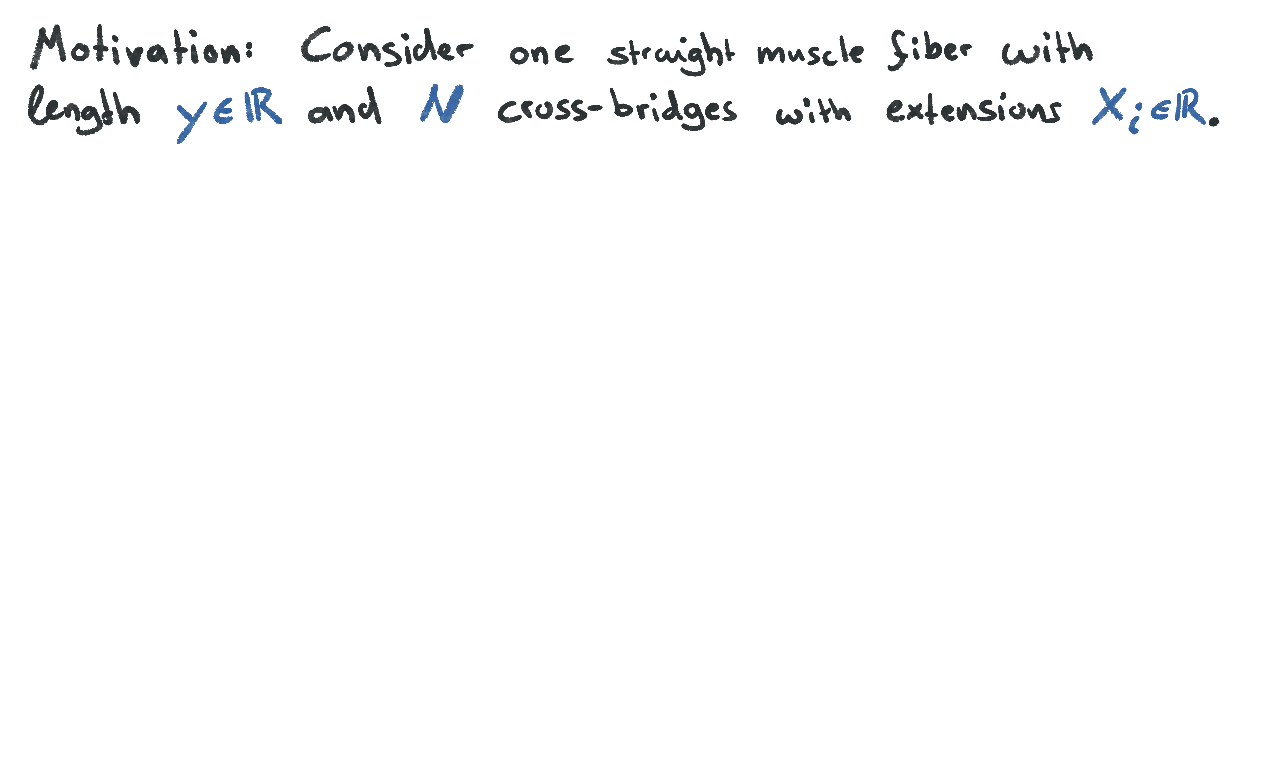 Motivation: Consider one straight muscle fiber with
length y∈ℝ and N cross-bridges with extensions Xᵢ∈ℝ.